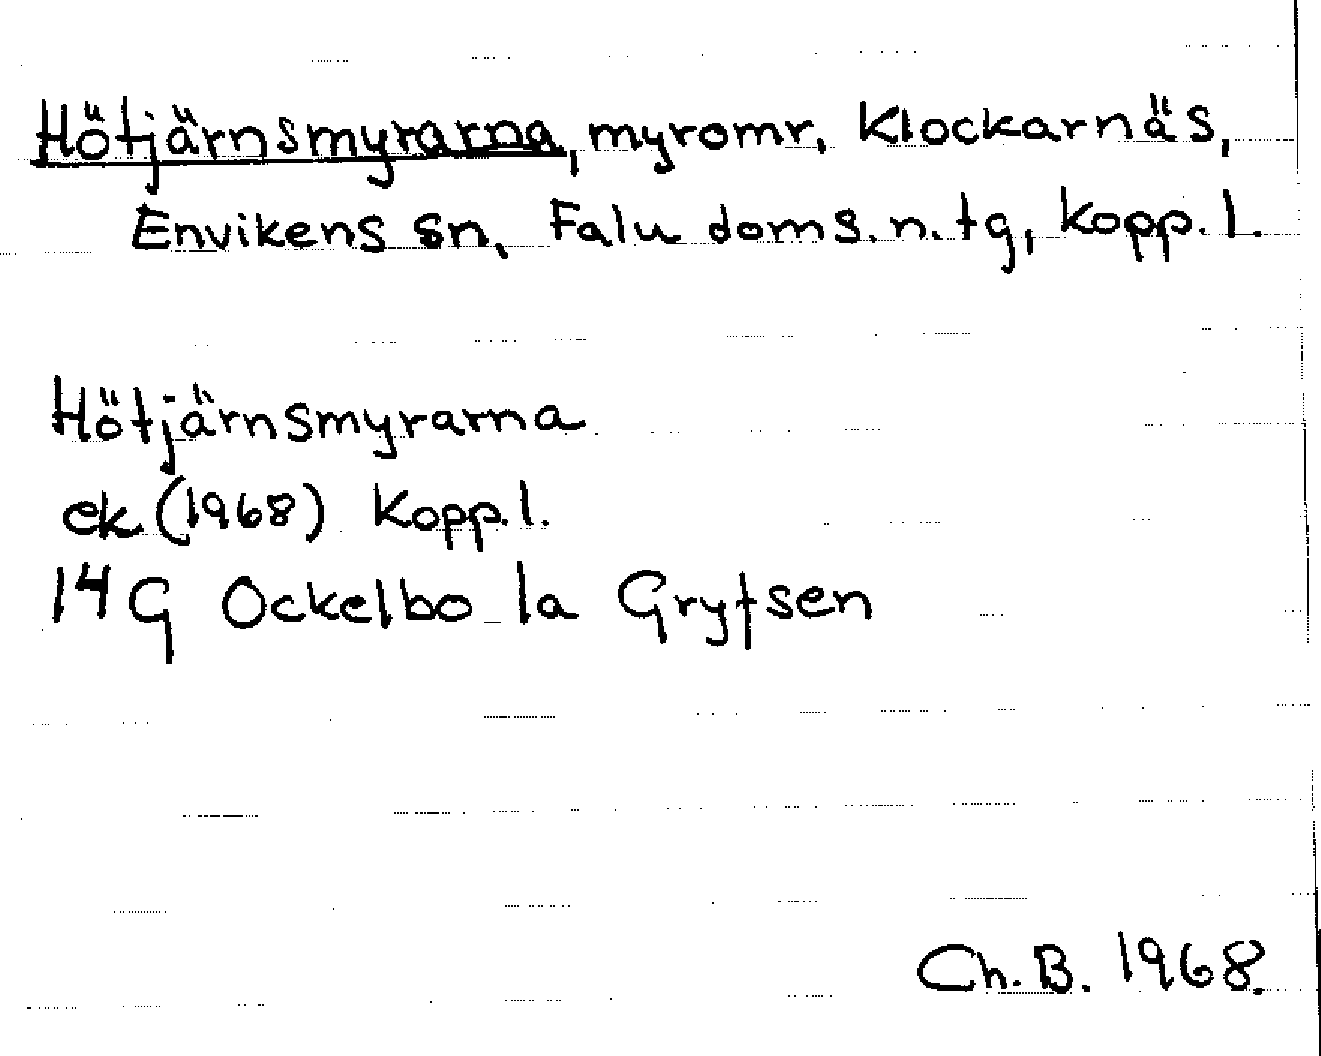 Hötjärnsmyrarna, myromr, Klockarnäs,
Envikens sn, Falu doms.n.tg, Kopp.l.
Hötjärnsmyrarna
ek (1968) Kopp.l.
14G Ockelbo 1a Grytsen
Ch.B. 1968.